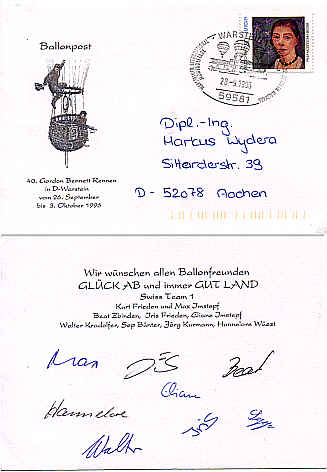 Ballonpost
WARSTEIN
59581
40. Gordon Bennett Rennen
in D-Warstein
vom 26. September
bis 3. Oktober 1996
Dipl.-Ing.
Markus Wydera
Sittarderstr. 39
D - 52078 Aachen
Wir wünschen allen Ballonfreunden
GLÜCK AB und immer GUT LAND
Swiss Team 1
Kurt Frieden und Max Imstepf
Beat Zbinden, Iris Frieden, Eliane Imstepf
Walter Kradolfer, Sep Bärter, Jörg Kurmann, Hannelore Wüest
Max
Beat
Eliane
Hannelore
Walter